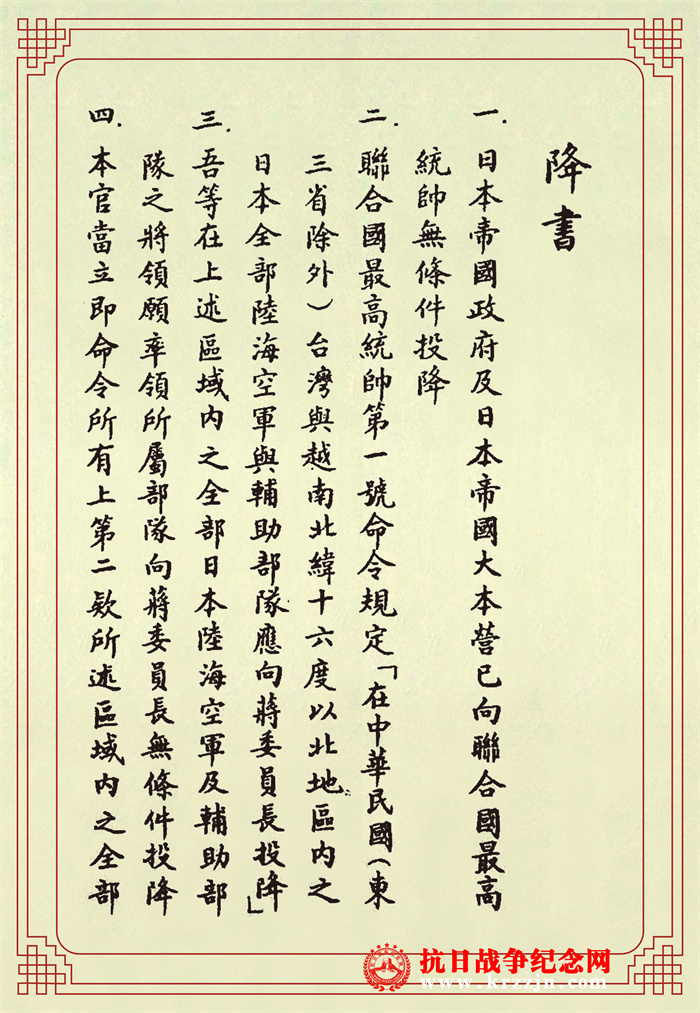 降書
一. 日本帝國政府及日本帝國大本營已向聯合國最高
統帥無條件投降
二. 聯合國最高統帥第一號命令規定「在中華民國(東
三省除外)台灣與越南北緯十六度以北地區內之
日本全部陸海空軍與輔助部隊應向蔣委員長投降」
三. 吾等在上述區域內之全部日本陸海空軍及輔助部
隊之將領願率領所屬部隊向蔣委員長無條件投降
四. 本官當立即命令所有上第二款所述區域內之全部
抗日战争纪念网
www.krzzjn.com